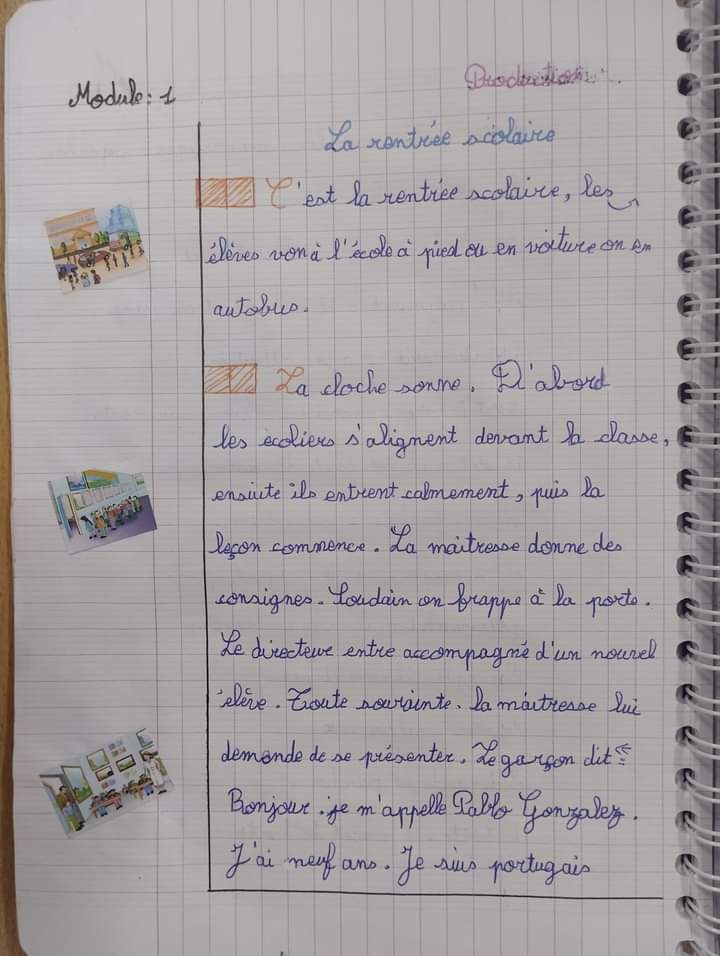 Production:.
Module: 1
La rentrée scolaire
C'est la rentrée scolaire, les
élèves von à l'école à pied ou en voiture on en
autobus.
La cloche sonne. D'abord
les écoliers s'alignent devant la classe,
ensiute ils entrent calmement, puis la
leçon commence. La maitresse donne des
consignes. Soudain on frappe à la porte.
Le directeur entre accompagné d'un nouvel
élève. Toute souriante. la maitresse lui
demande de se présenter. Le garçon dit «:
Bonjour. je m'appelle Pablo Gonzalez.
J'ai neuf ans. Je suis portugais